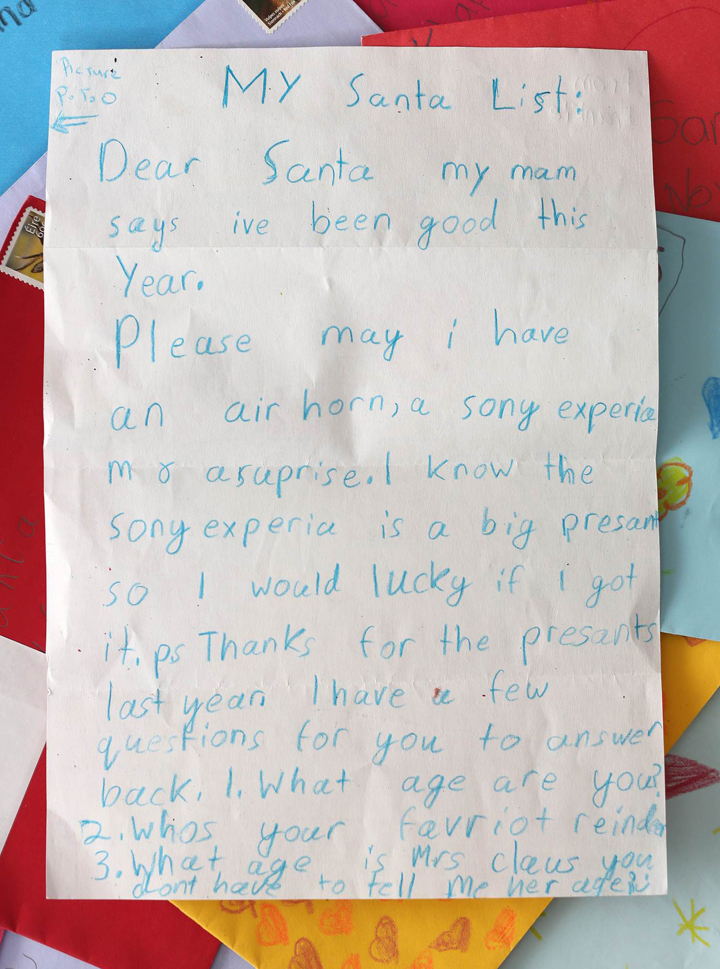 Picture
P.T.O
MY Santa List:
Dear Santa my mam
says ive been good this
Year.
Please may i have
an air horn, a sony experia
m a suprise. I know the
sony experia is a big presant
so I would lucky if I got
it. ps Thanks for the presants
last year I have a few
questions for you to answer
back. 1. What age are you?
2. Whos your favriot reinder
3. What age is Mrs claus you
dont have to tell me her age
Éire